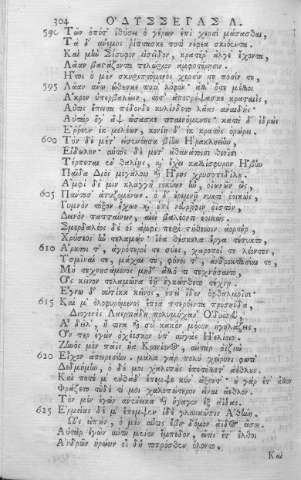 304 ΟΔΥΣΣΕΙΑΣ Λ.
590 Τῶν ὁπότ' ἰθύσει ὁ γέρων ἐπὶ χερσὶ μάσασθαι,
Τὰ δ' ἄνεμος ῥίπτασκε ποτὶ νέφεα σκιόεντα.
Καὶ μὴν Σίσυφον εἰσεῖδον, κρατέρ' ἄλγε' ἔχοντα,
Λᾶαν βαστάζοντα πελώριον ἀμφοτέρῃσιν.
Ἤτοι ὁ μὲν σκηριπτόμενος χερσίν τε ποσίν τε
595 Λᾶαν ἄνω ὤθεσκε ποτὶ λόφον· ἀλλ' ὅτε μέλλοι
Ἄκρον ὑπερβαλέειν, τότ' ἀποστρέψασκε κραταιίς,
Αὖτις ἔπειτα πέδονδε κυλίνδετο λᾶας ἀναιδής·
Αὐτὰρ ὅγ' ἂψ ὤσασκε τιταινόμενος· κατὰ δ' ἱδρὼς
Ἔρρεεν ἐκ μελέων, κονίη δ' ἐκ κρατὸς ὀρώρει.
600 Τὸν δὲ μέτ' εἰσενόησα βίην Ἡρακληείην,
Εἴδωλον· αὐτὸς δὲ μετ' ἀθανάτοισι θεοῖσι
Τέρπεται ἐν θαλίῃς, καὶ ἔχει καλλίσφυρον Ἥβην
Παῖδα Διὸς μεγάλοιο καὶ Ἥρης χρυσοπεδίλου.
Ἀμφὶ δέ μιν κλαγγὴ νεκύων ἦν, οἰωνῶν ὣς,
605 Πάντοσ' ἀτυζομένων· ὁ δ' ἐρεμνῇ νυκτὶ ἐοικὼς,
Γυμνὸν τόξον ἔχων καὶ ἐπὶ νευρῆφιν ὀϊστὸν,
Δεινὸν παπταίνων, αἰεὶ βαλέοντι ἐοικώς.
Σμερδαλέος δέ οἱ ἀμφὶ περὶ στήθεσσιν ἀορτὴρ,
Χρύσεος ἦν τελαμὼν· ἵνα θέσκελα ἔργα τέτυκτο,
610 Ἄρκτοι τ', ἀγρότεροί τε σύες, χαροποί τε λέοντες,
Ὑσμῖναί τε, μάχαι τε, φόνοι τ', ἀνδροκτασίαι τε.
Μὴ τεχνησάμενος μηδ' ἄλλό τι τεχνήσαιτο,
Ὃς κεῖνον τελαμῶνα ἑῇ ἐγκάτθετο τέχνῃ.
Ἔγνω δ' αὐτίκα κεῖνος, ἐπεὶ ἴδεν ὀφθαλμοῖσι·
615 Καί μ' ὀλοφυρόμενος ἔπεα πτερόεντα προσηύδα,
Διογενὲς Λαερτιάδη πολυμήχαν' Ὀδυσσεῦ,
Ἆ δείλ', ἦ τινὰ καὶ σὺ κακὸν μόρον ἡγηλάζεις,
Ὅν περ ἐγὼν ὀχέεσκον ὑπ' αὐγὰς ἠελίοιο.
Ζηνὸς μὲν πάϊς ἦα Κρονίονος, αὐτὰρ ὀϊζὺν
620 Εἶχον ἀπειρεσίην· μάλα γὰρ πολὺ χείρονι φωτὶ
Δεδμήμην, ὁ δέ μοι χαλεποὺς ἐπετέλλετ' ἀέθλους.
Καί ποτέ μ' ἐνθάδ' ἔπεμψε κύν' ἄξοντ'· οὐ γὰρ ἔτ' ἄλλον
Φράζετο τοῦδέ τί μοι χαλεπώτερον εἶναι ἄεθλον.
Τὸν μὲν ἐγὼν ἀνένεικα καὶ ἤγαγον ἐξ ἀΐδαο.
625 Ἑρμείας δέ μ' ἔπεμψεν ἰδὲ γλαυκῶπις Ἀθήνη.
Ὣς εἰπὼν, ὁ μὲν αὖτις ἔβη δόμον ἄϊδος εἴσω.
Αὐτὰρ ἐγὼν αὐτοῦ μένον ἔμπεδον, εἴ τις ἔτ' ἔλθοι
Ἀνδρῶν ἡρώων οἳ δὴ τοπρόσθεν ὄλοντο.
Καὶ